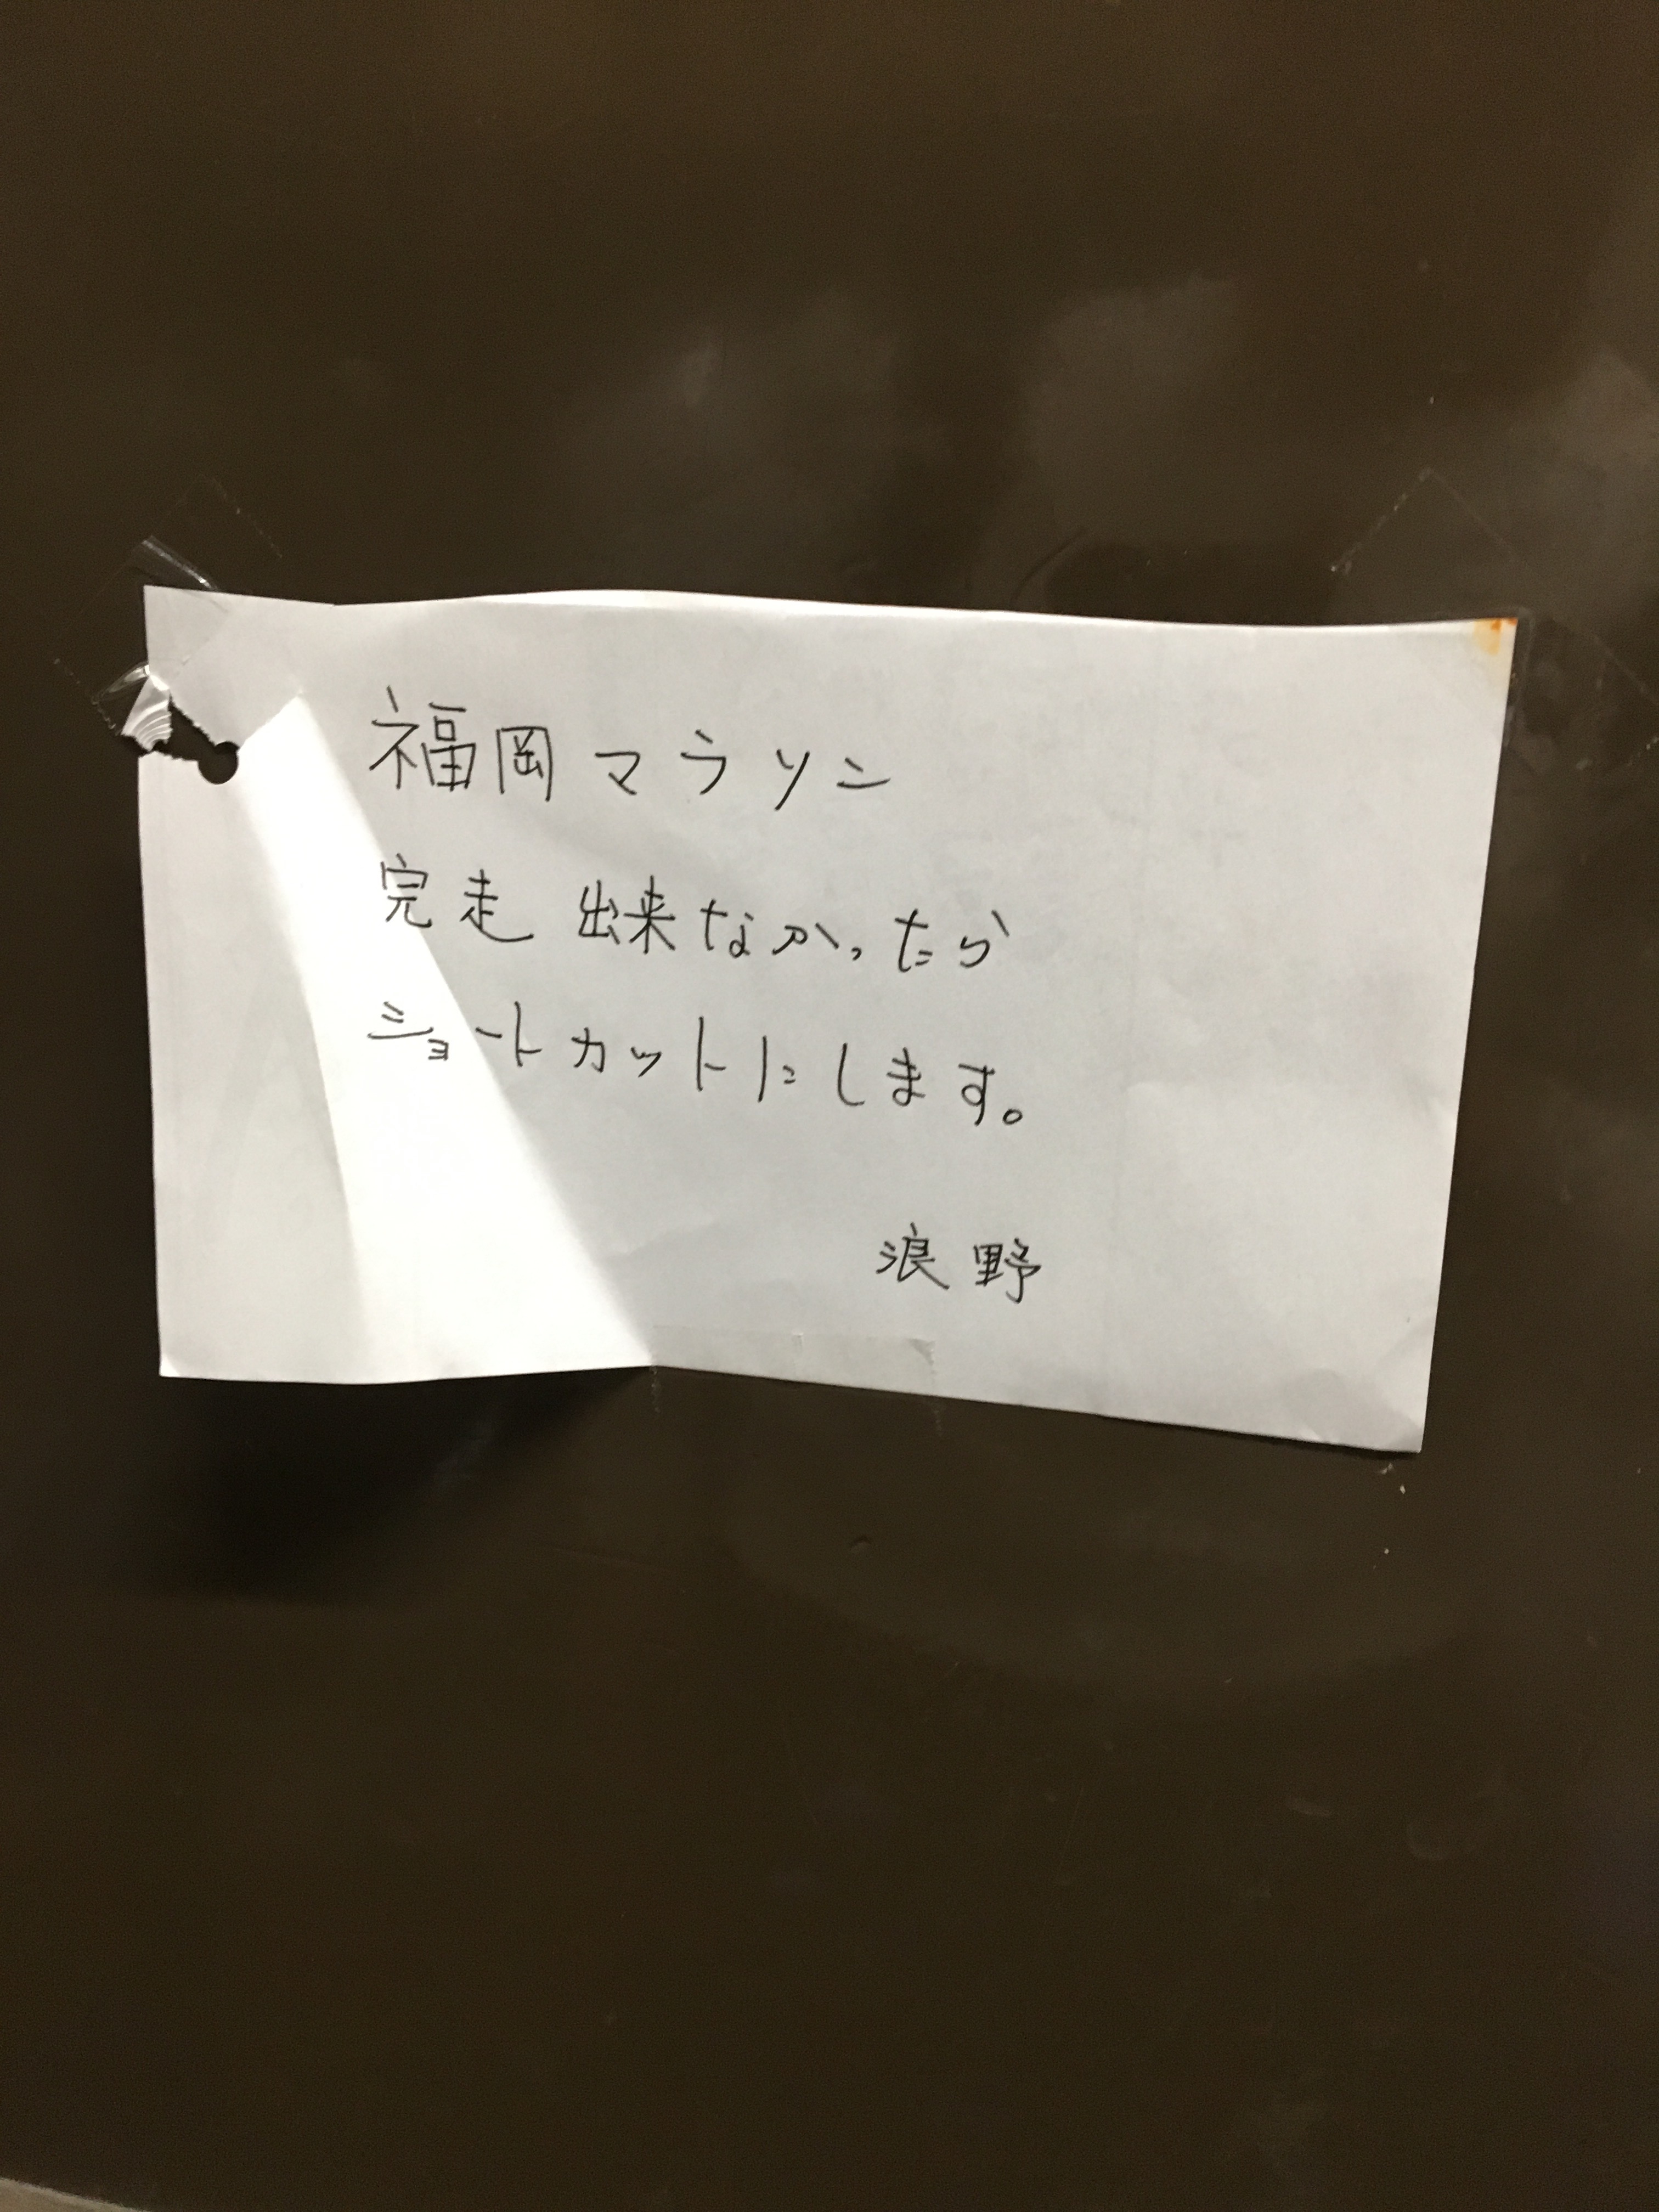 福岡マラソン
完走 出来なかったら
ショートカットにします。
浪野